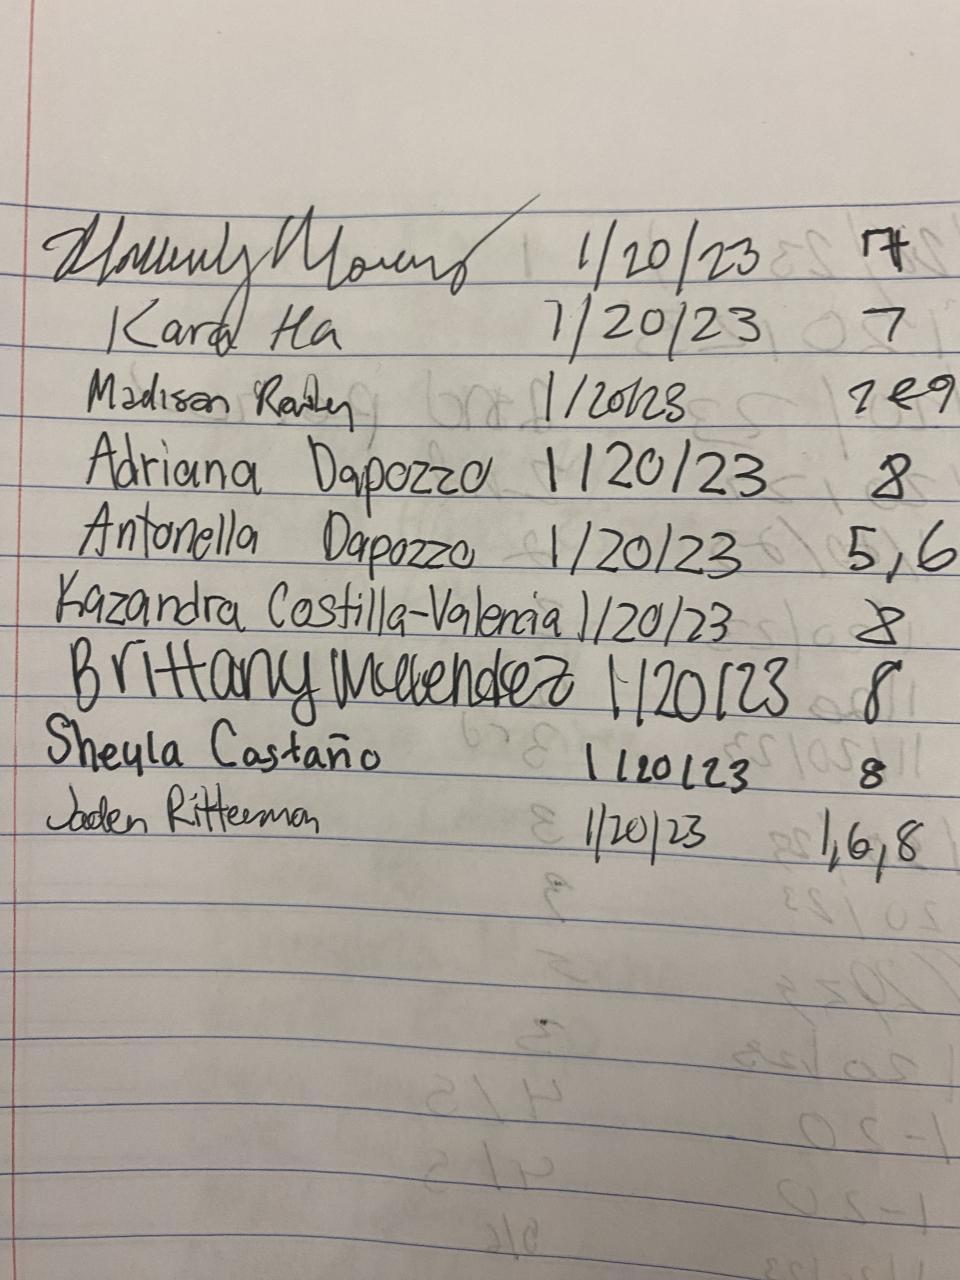 1/20/23 7
Kara Ha 1/20/23 7
Madison 1/20/23 2 & 9
Adriana Dapozzo 1/20/23 8
Antonella Dapozzo 1/20/23 5,6
Kazandra Costilla-Valencia 1/20/23 8
Brittany 1/20/23 8
Sheyla Castaño 1/20/23 8
Jaden Ritterman 1/20/23 1,6,8